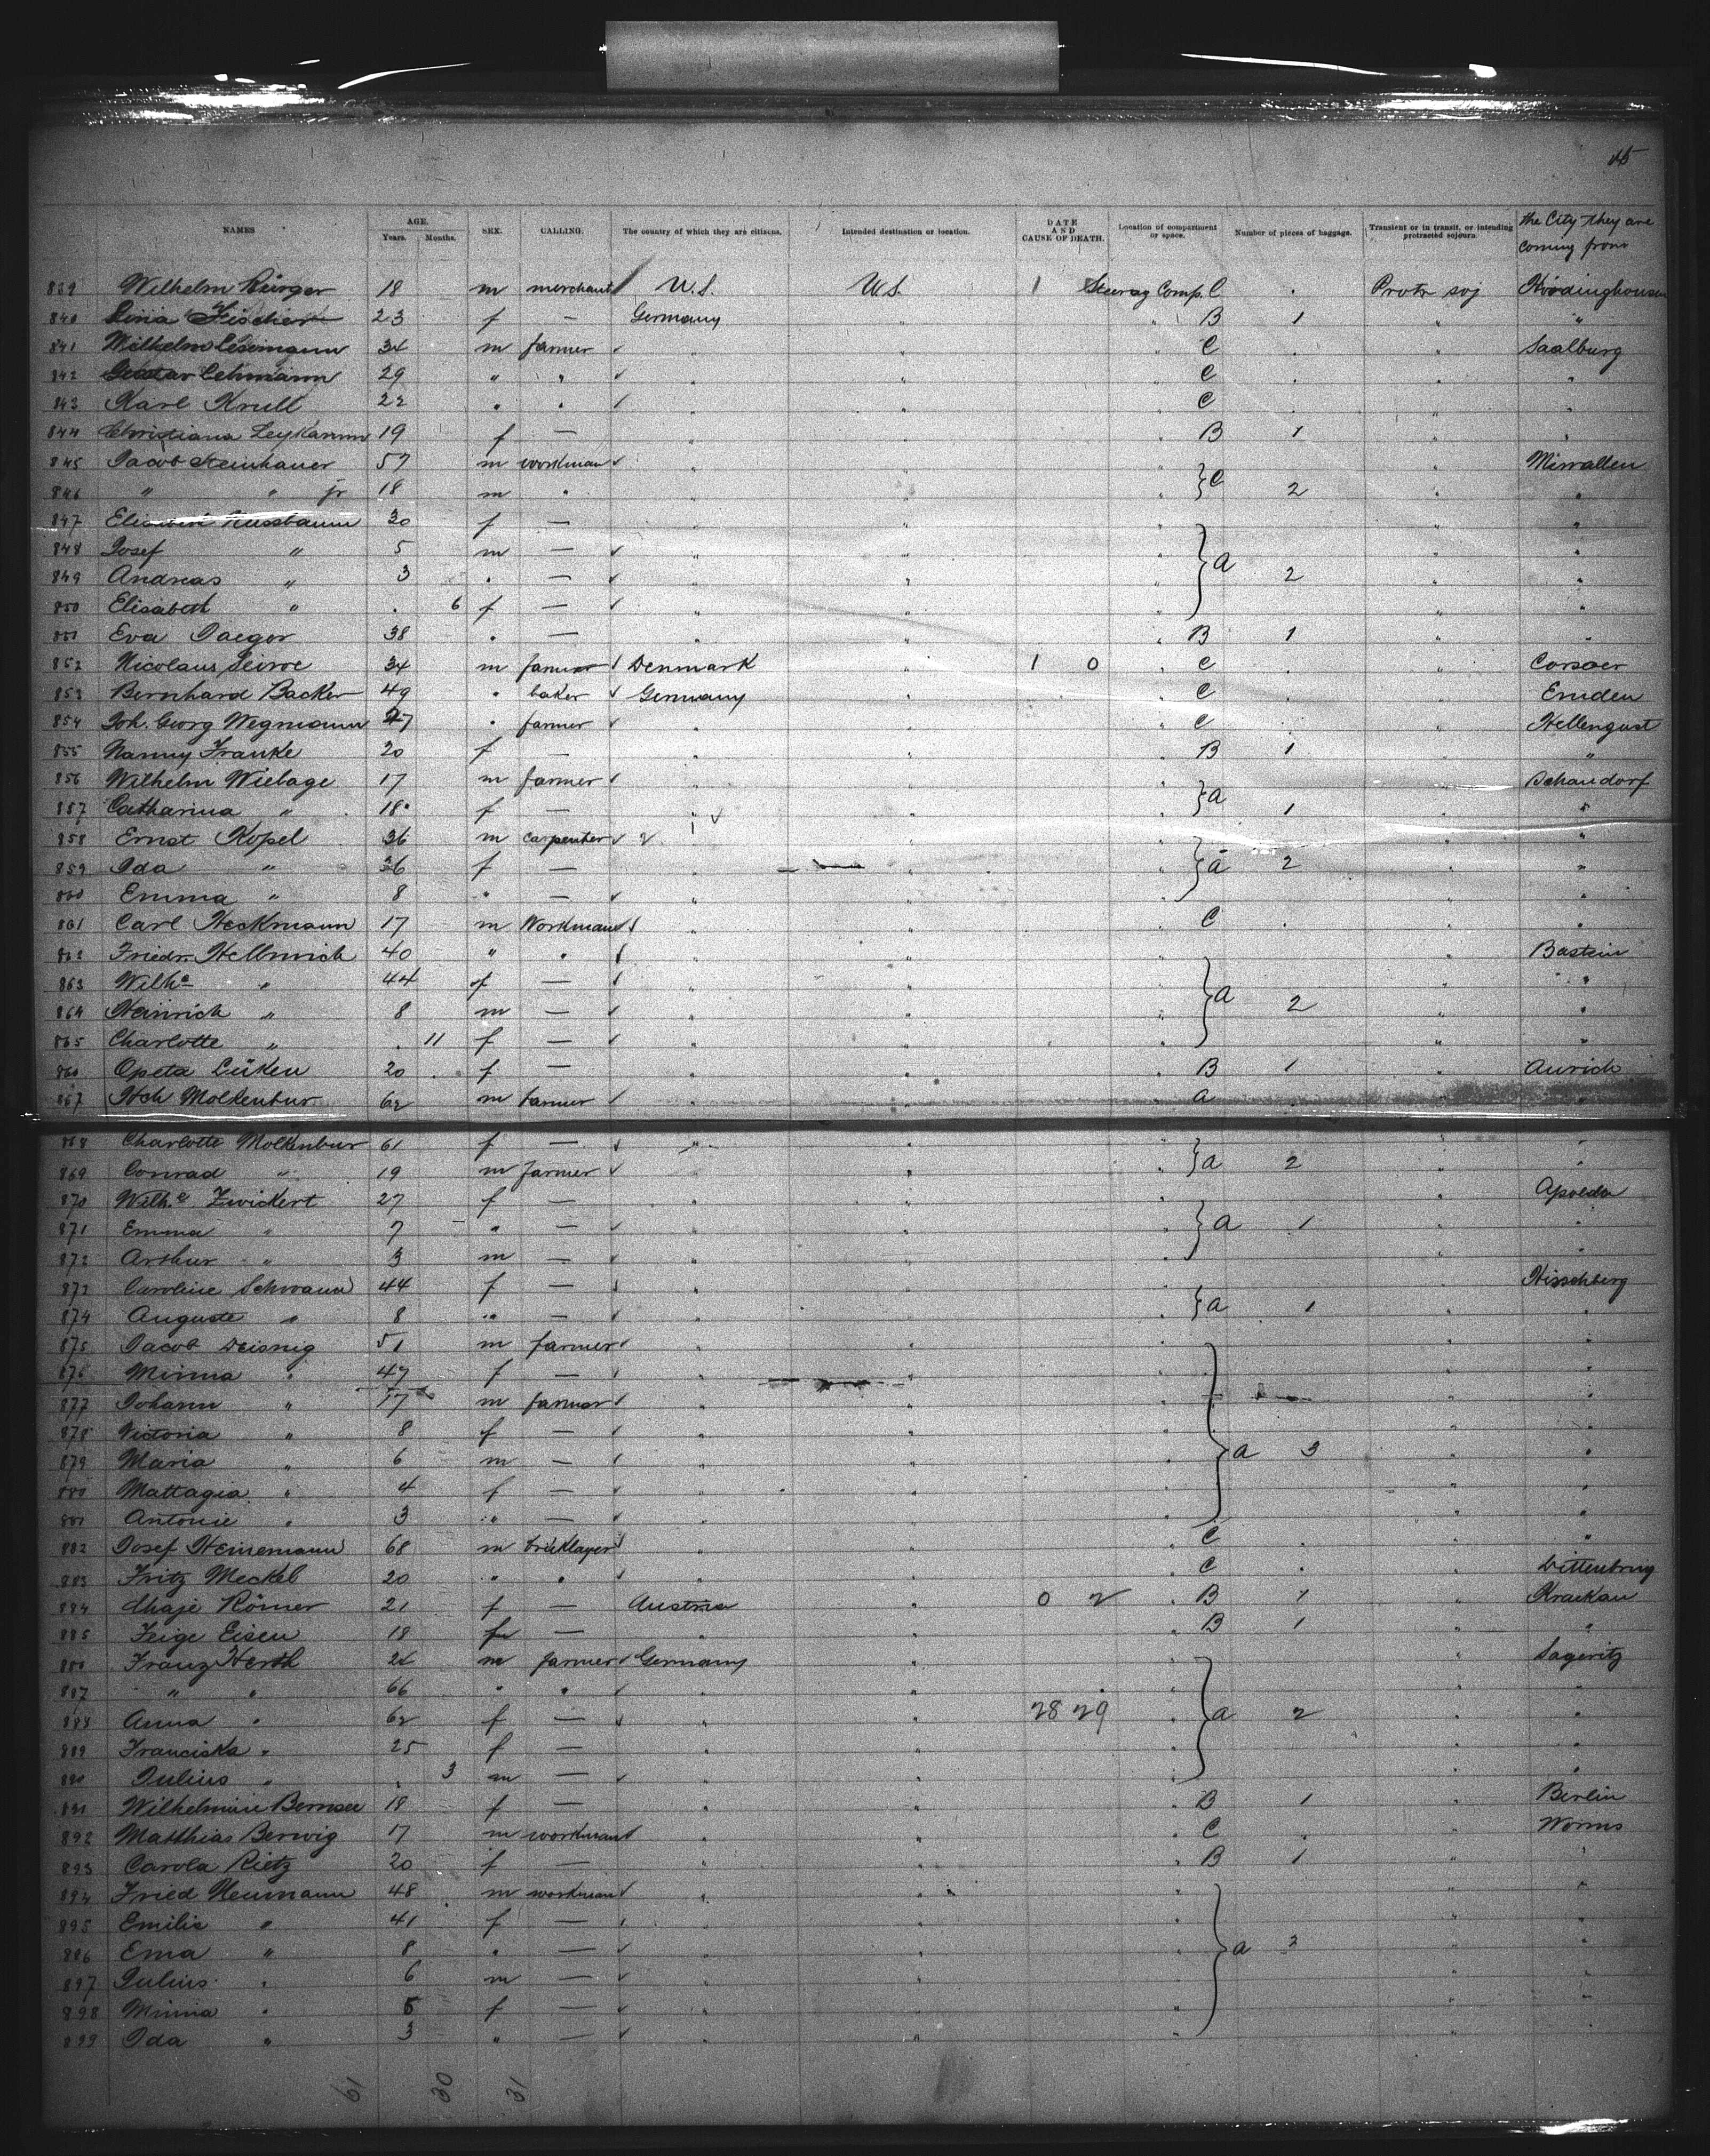 15
NAMES AGE. Years. Months. SEX. CALLING. The country of which they are citizens. Intended destination or location. DATE AND CAUSE OF DEATH. Location of compartment or space. Number of pieces of baggage. Transient or in transit, or intending protracted sojourn. the City they are coming from
839 Wilhelm Bürger 18 m merchant U.S. U.S. 1 Steerag Comp. C Protr soj
840 Lina Fischer 23 f — Germany " B 1 " "
841 Wilhelm Lesemann 34 m farmer " " C " Saalburg
842 Gustav Lehmann 29 " " " " C " "
843 Karl Krull 22 " " " " C " "
844 Christiana Leykamm 19 f — " " B 1 " "
845 Jacob Steinhauer 57 m workman " " "
846 " " jr 18 m " " " } C 2 " "
847 Elisabeth Nussbaum 30 f — " " " "
848 Josef " 5 m — " " " "
849 Andreas " 3 " — " " } a 2 " "
850 Elisabeth " . 6 f — " " " "
851 Eva Jaeger 38 " — " " B 1 " "
852 Nicolaus 34 m farmer Denmark " 1 0 C " Corsoer
853 Bernhard Backer 49 " baker Germany " C " Emden
854 Joh. Georg Wegmann 27 " farmer " " C " Hellengust
855 Nanny Franke 20 f — " " B 1 " "
856 Wilhelm Wiebage 17 m farmer " " " Schandorf
857 Catharina " 18 f — " " } a 1 " "
858 Ernst Kopel 36 m carpenter " " "
859 Ida " 36 f — " } a 2 " "
860 Emma " 8 " — " " " "
861 Carl Heckmann 17 m Workman " " C " "
862 Friedr. Hellmich 40 " " " " " Bastein
863 Wilhe " 44 f — " " " "
864 Heinrich " 8 m — " " } a 2 " "
865 Charlotte " . 11 f — " " " "
866 Opeta Lüken 20 f — " " B 1 " Aurich
867 Hch Molkenbur 62 m farmer " " a " "
868 Charlotte Molkenbur 61 f — " " " "
869 Conrad " 19 m farmer " " } a 2 " "
870 Wilhe. Zwickert 27 f — " " " Apolda
871 Emma " 7 " — " " } a 1 " "
872 Arthur " 3 m — " " " "
873 Caroline Schwana 44 f — " " " Hirschberg
874 Auguste " 8 " — " " } a 1 " "
875 Jacob Deisnig 51 m farmer " " " "
876 Minna " 47 f — " " "
877 Johann " 17 m farmer " " " "
878 Victoria " 8 f — " " " "
879 Maria " 6 m — " " } a 3 " "
880 Mattagia " 4 f — " " " "
881 Antonie " 3 " — " " " "
882 Josef Heinemann 68 m bricklayer " " C " "
883 Fritz Meckel 20 " " " " C " Dittenbrug
884 Chaje Römer 21 f — Austria " 0 2 B 1 " Krackau
885 Feige Eisen 18 f — " " B 1 " "
886 Franz Herth 24 m farmer Germany " " Sageritz
887 " " 66 " " " " " "
888 Anna " 62 f — " " 28 29 } a 2 " "
889 Franciska " 25 f — " " " "
890 Julius " . 3 m — " " " "
891 Wilhelmine Bernsee 18 f — " " B 1 " Berlin
892 Matthias Berwig 17 m workman " " C " Worms
893 Carola Rietz 20 f — " " B 1 " "
894 Fried Neumann 48 m workman " " " "
895 Emilie " 41 f — " " " "
896 Ema " 8 " — " " } a 3 " "
897 Julius " 6 m — " " " "
898 Minna " 5 f — " " " "
899 Ida " 3 " — " " " "
61 30 31